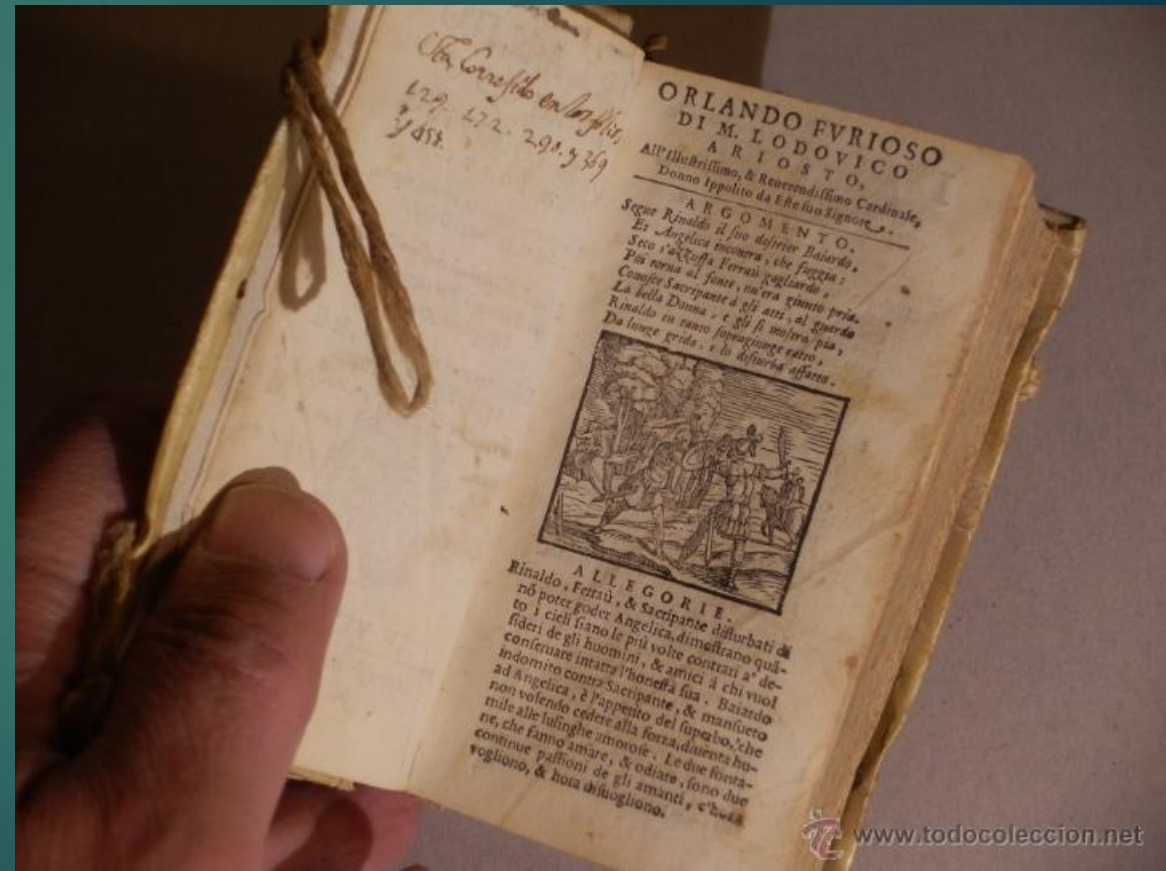 Esta Corregido en los folios,
129. 272. 290. y 369
y 454.
ORLANDO FVRIOSO
DI M. LODOVICO
ARIOSTO,
All'Illustrissimo, & Reuerendissimo Cardinale,
Donno Ippolito da Este suo Signore.
ARGOMENTO.
Segue Rinaldo il suo destrier Baiardo,
Et Angelica incontra, che fuggia:
Seco s'azzuffa Ferraù gagliardo,
Poi torna al fonte, ou'era giunto pria.
Conosce Sacripante à gli atti, al guardo
La bella Donna, e gli si mostra pia,
Rinaldo in tanto sopragiunge ratto,
Da lunge grida, e lo disturba affatto.
ALLEGORIE.
Rinaldo, Ferraù, & Sacripante disturbati di
nō poter goder Angelica, dimostrano quā-
to i cieli siano le più volte contrari a' de-
sideri de gli huomini, & amici à chi vuol
conseruare intatta l'honestà sua. Baiardo
indomito contra Sacripante, & mansueto
ad Angelica, è l'appetito del superbo, che
non volendo cedere alla forza, diuenta hu-
mile alle lusinghe amorose. Le due fonta-
ne, che fanno amare, & odiare, sono due
continue passioni de gli amanti, c'hora
vogliono, & hora disuogliono.
www.todocoleccion.net